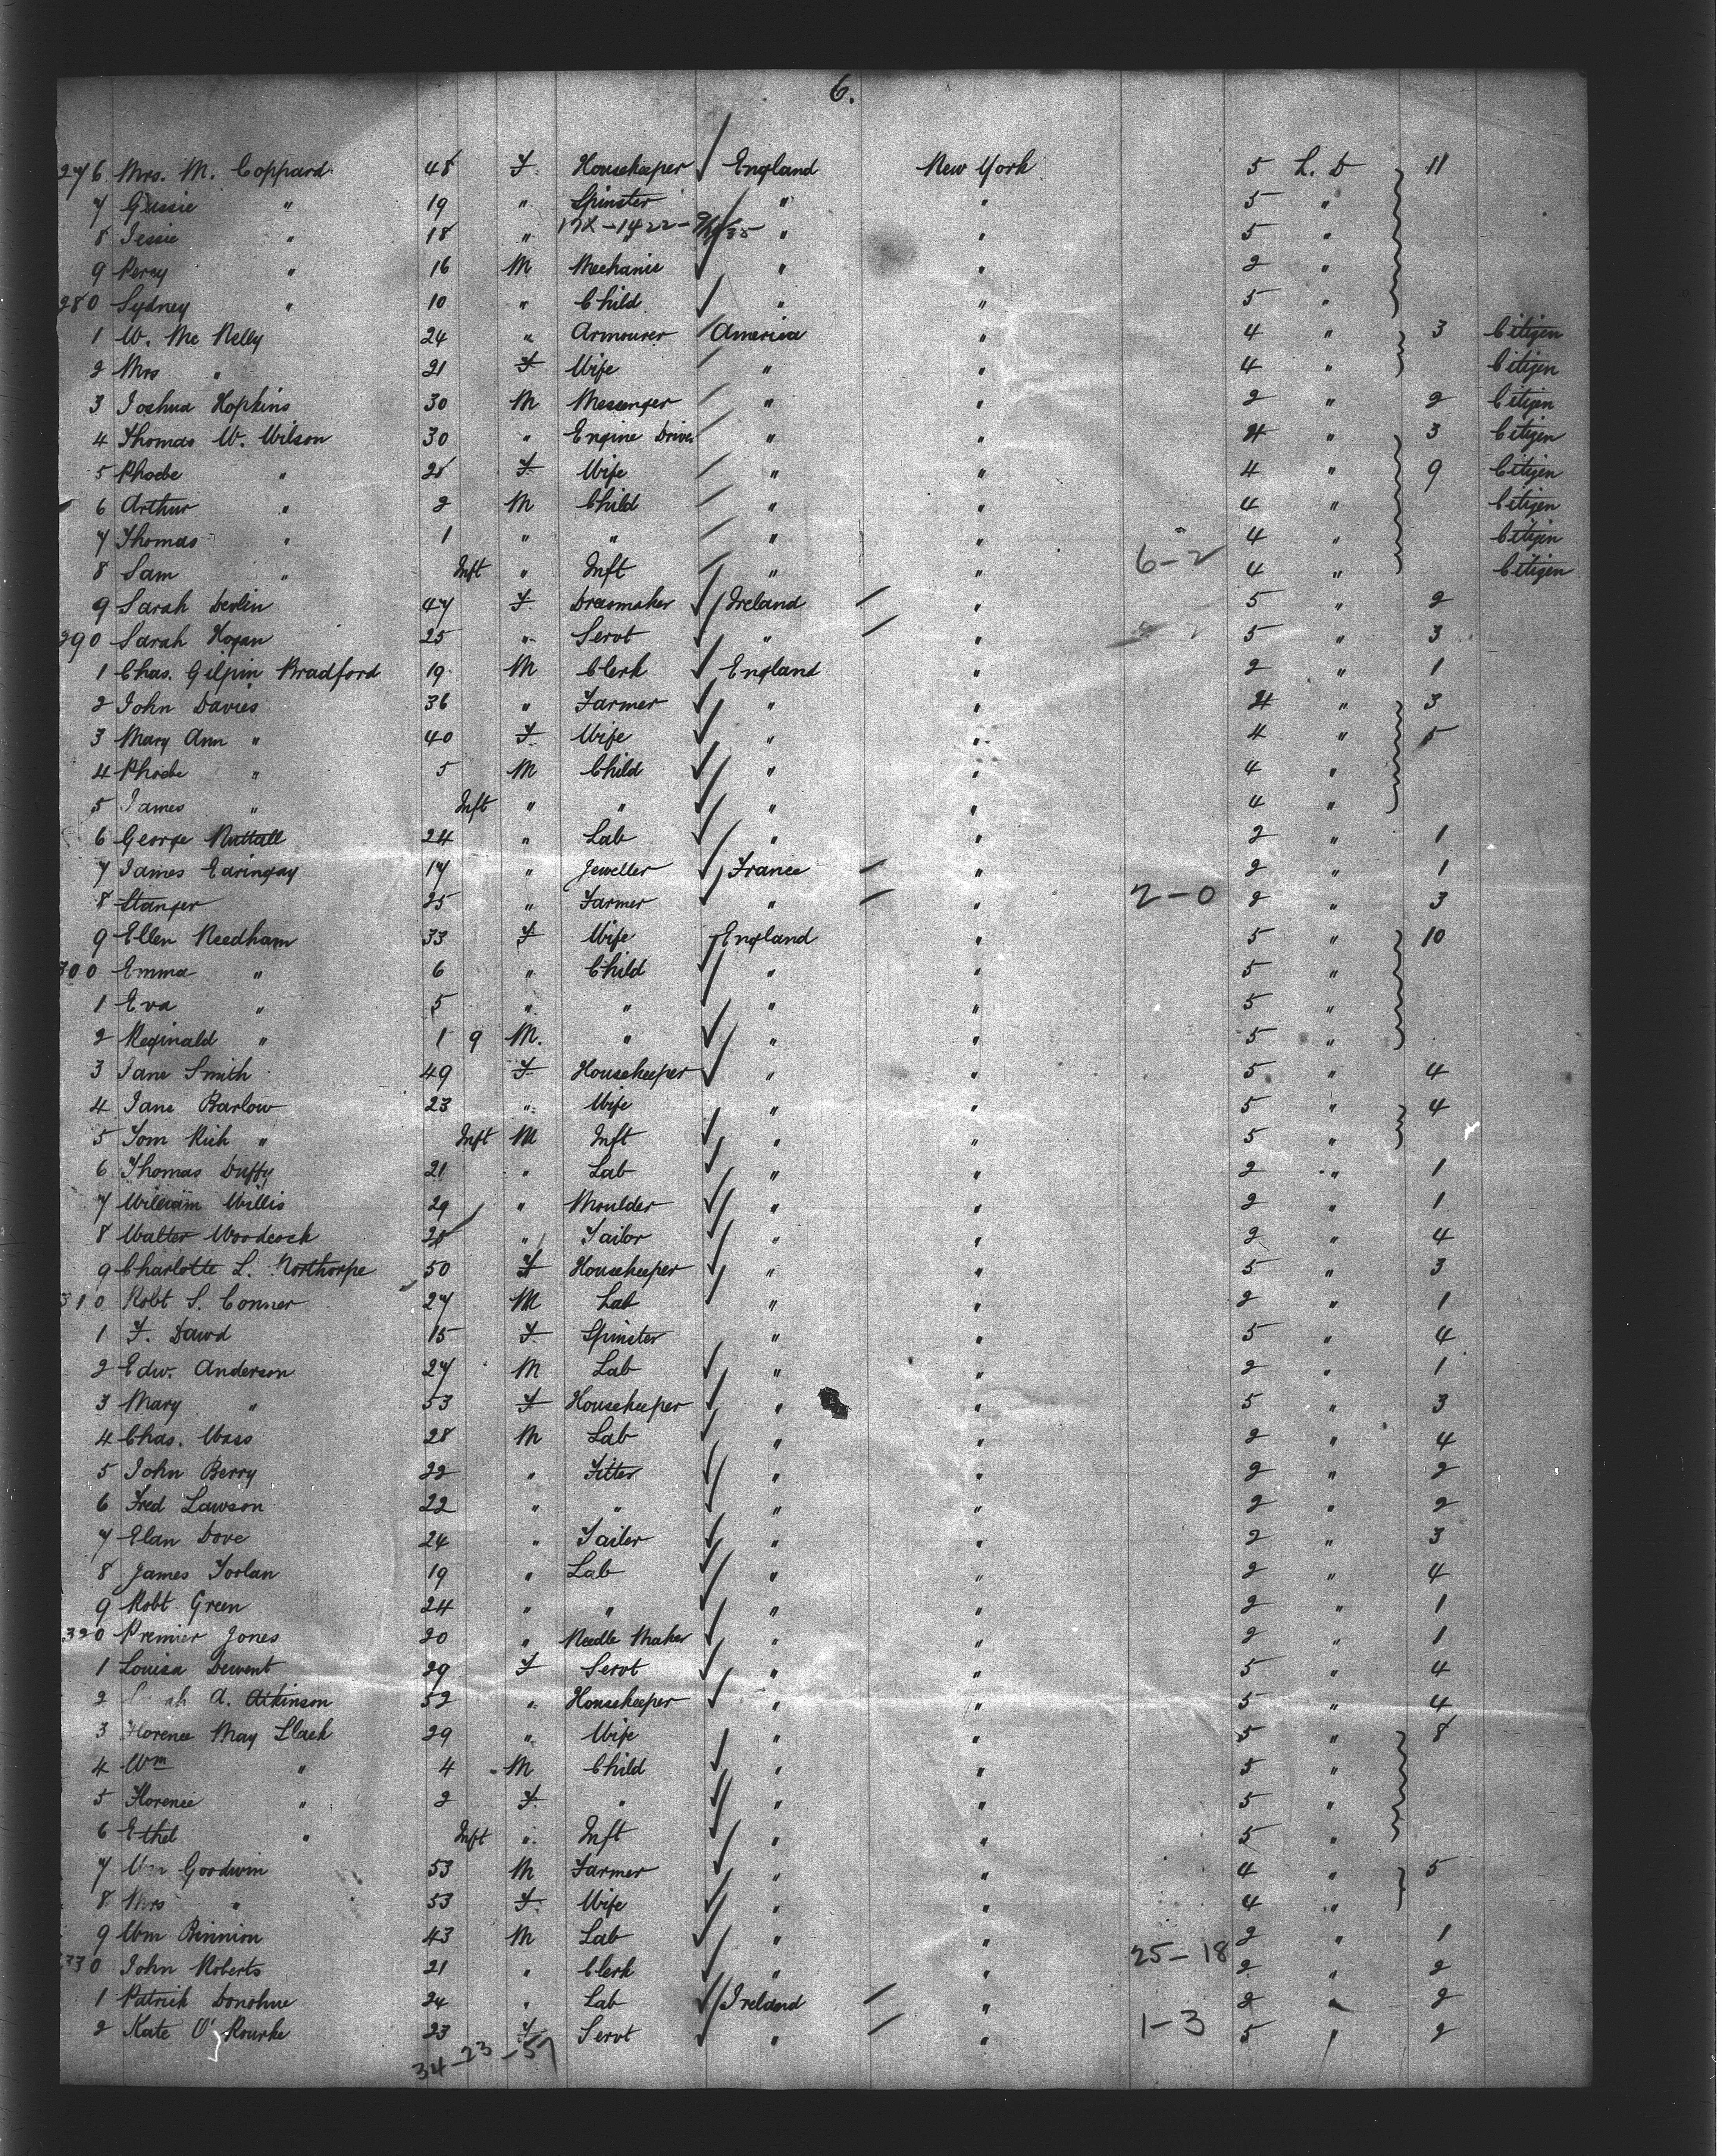 6.
276 Mrs. M. Coppard 48 F. Housekeeper England New York 5 L. D 11
7 Gussie " 19 " Spinster " " 5 "
8 Jessie " 18 " 17X-1422- " " 5 "
9 Percy " 16 M Mechanic " " 2 "
280 Sydney " 10 " Child " " 5 "
1 W. Mc Nelly 24 " Armourer America " 4 " 3 Citizen
2 Mrs " 21 F Wife " " 4 " Citizen
3 Joshua Hopkins 30 M Messenger " " 2 " 2 Citizen
4 Thomas W. Wilson 30 " Engine Driver " " 4 " 3 Citizen
5 Phoebe " F Wife " " 4 " 9 Citizen
6 Arthur " 2 M Child " " 4 " Citizen
7 Thomas " 1 " " " " 4 " Citizen
8 Sam " Inft " Inft " " 6-2 4 " Citizen
9 Sarah Devlin 47 F. Dressmaker Ireland " 5 " 2
290 Sarah Hogan 25 " Servt " " 5 " 3
1 Chas. Gilpin Bradford 19 M Clerk England " 2 " 1
2 John Davies 36 " Farmer " " 4 " 3
3 Mary Ann " 40 F Wife " " 4 " 5
4 Phoebe " 5 M Child " " 4 "
5 James " Inft " " " " 4 "
6 George Nuttall 24 " Lab " " 2 " 1
7 James Earingay 17 " Jeweller France " 2 " 1
8 Stanger 25 " Farmer " " 2-0 2 " 3
9 Ellen Needham 33 F Wife England " 5 " 10
300 Emma " 6 " Child " " 5 "
1 Eva " 5 " " " " 5 "
2 Reginald " 1 9 M. " " " 5 "
3 Jane Smith 49 F Housekeeper " " 5 " 4
4 Jane Barlow 23 " Wife " " 5 " 4
5 Tom Rich " Inft M Inft " " 5 "
6 Thomas Duffy 21 " Lab " " 2 " 1
7 William Willis 29 " Moulder " " 2 " 1
8 Walter Woodcock " Tailor " " 2 " 4
9 Charlotte L. Northorpe 50 F Housekeeper " " 5 " 3
310 Robt S. Conner 27 M Lab " " 2 " 1
1 F. Dawd 15 F Spinster " " 5 " 4
2 Edw. Anderson 27 M Lab " " 2 " 1
3 Mary " 53 F Housekeeper " " 5 " 3
4 Chas. Wass 28 M Lab " " 2 " 4
5 John Berry 22 " Fitter " " 2 " 2
6 Fred Lawson 22 " " " " 2 " 2
7 Elan Dove 24 " Tailer " " 2 " 3
8 James Forlan 19 " Lab " " 2 " 4
9 Robt Green 24 " " " " 2 " 1
320 Premier Jones 20 " Needle Maker " " 2 " 1
1 Louisa Dewent 29 F Servt " " 5 " 4
2 A. Atkinson 52 " Housekeeper " " 5 " 4
3 Florence May Slack 29 " Wife " " 5 " 8
4 Wm " 4 M Child " " 5 "
5 Florence " 2 F " " " 5 "
6 Ethel " Inft " Inft " " 5 "
7 Wm Goodwin 53 M Farmer " " 4 " 5
8 Mrs " 53 F. Wife " " 4 "
9 Wm Binnion 43 M Lab " " 2 " 1
330 John Roberts 21 " Clerk " " 25-18 2 " 2
1 Patrick Donohue 24 " Lab Ireland " 2 " 2
2 Kate O'Rourke 23 F Servt " " 1-3 5 " 2
34-23-57